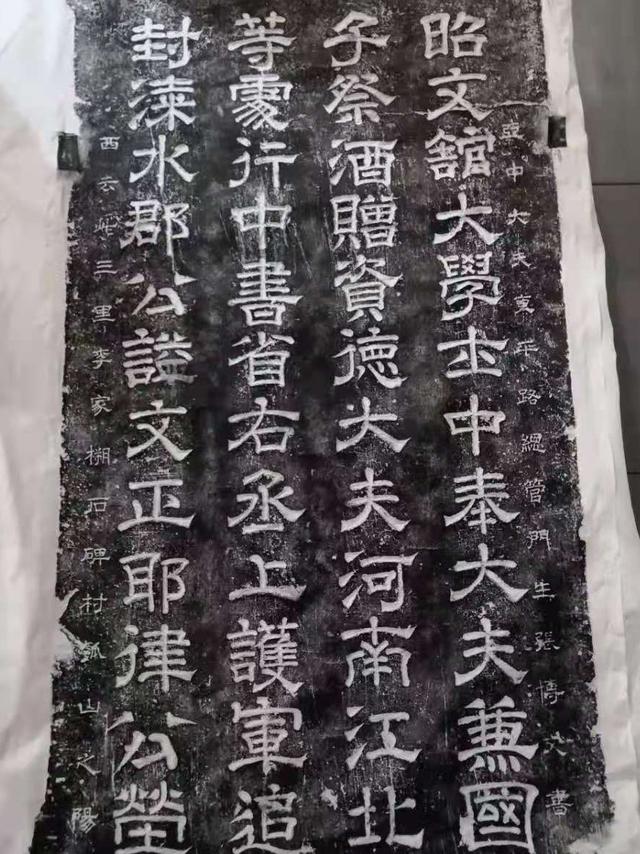 亞中大夫平路總管門生張書
昭文館大學士中奉大夫兼國
子祭酒贈資德大夫河南江北
等處行中書省右丞上護軍追
封漆水郡公謚文正耶律公塋
西去此三里李家石碑村瓠山之陽